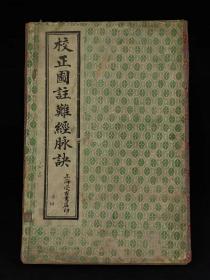 校正圖註難經脉訣
上海
書局印